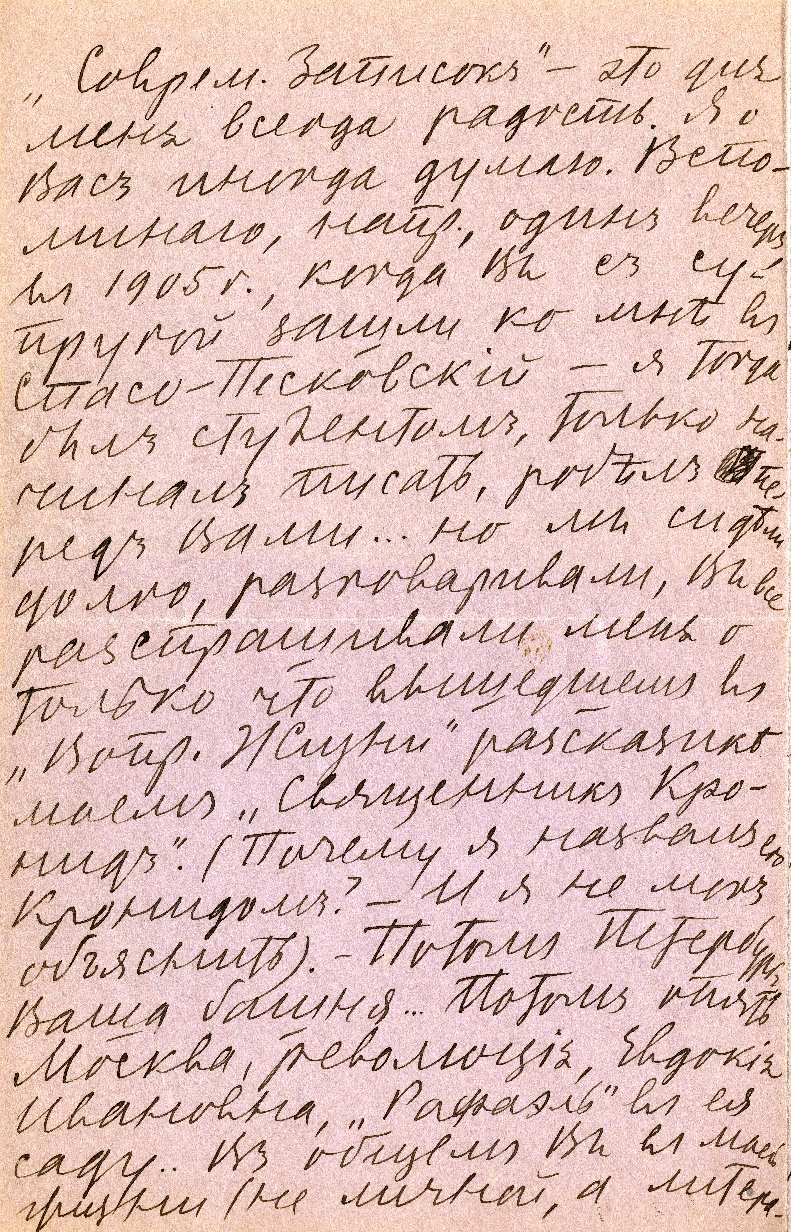 „Соврем. Записокъ" — это для
меня всегда радость. Я о
Васъ иногда думаю. Вспо-
минаю, напр., одинъ вечеръ,
въ 1905 г., когда Вы съ су-
пругой зашли ко мнѣ въ
Спасо-Песковскій — я тогда
былъ студентомъ, только на-
чиналъ писать, робѣлъ пе-
редъ Вами... но мы сидѣли
долго, разговаривали, Вы все
разспрашивали меня о
только что вышедшемъ въ
„Вопр. Жизни" разсказикѣ
моемъ „Священникъ Кро-
нидъ". (Почему я назвалъ его
Кронидомъ? — И я не могъ
объяснить). — Потомъ Петербургъ,
Ваша башня... Потомъ опять
Москва, революція, Евдокія
Ивановна, „Рафаэль" въ ея
саду.. Въ общемъ Вы въ моей
жизни (не личной, а литера-